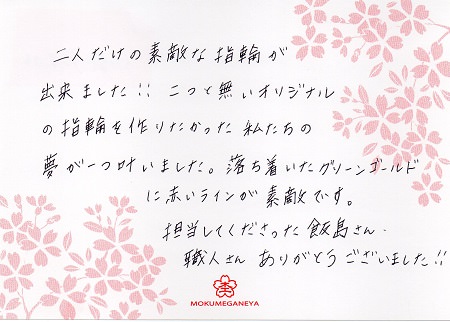 二人だけの素敵な指輪が
出来ました!! 二つと無いオリジナル
の指輪を作りたかった私たちの
夢が一つ叶いました。落ち着いたグリーンゴールド
に赤いラインが素敵です。
担当してくださった飯島さん・
職人さん ありがとうございました!!
MOKUMEGANEYA